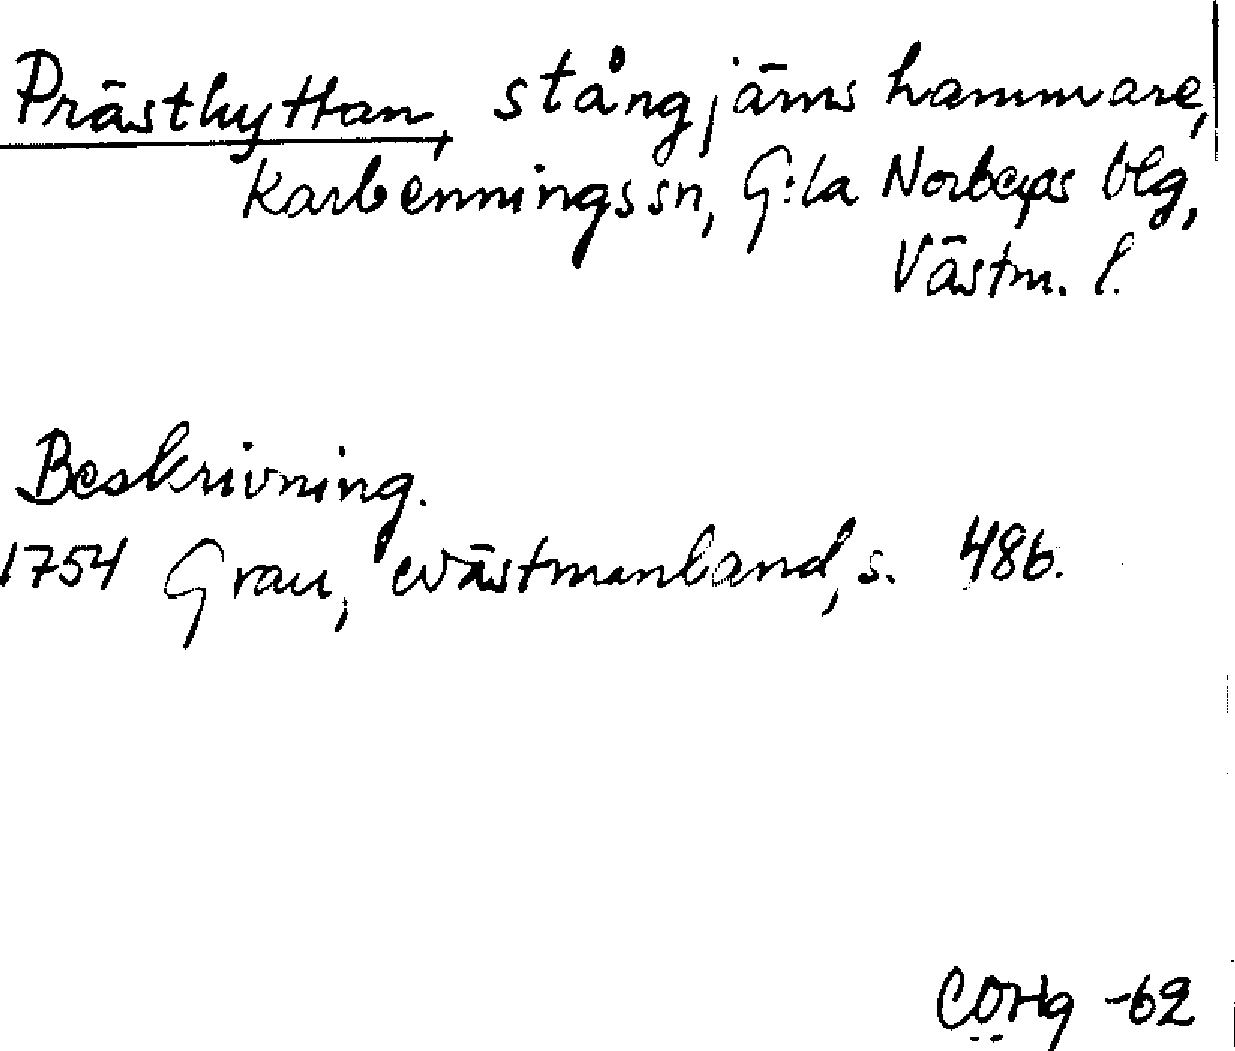 Prästhyttan, stångjärnshammare,
Karbennings sn, G:la Norbergs blg,
Västm. l.
Beskrivning.
1754 Grau, Wästmanland, s. 486.
-62